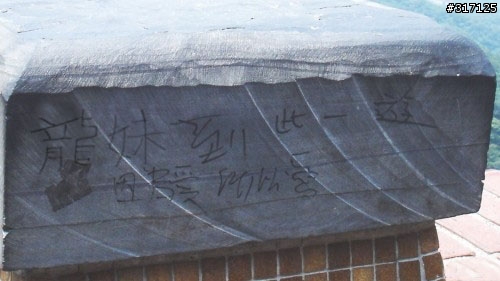 #317125
龍妹到此一遊
因為愛